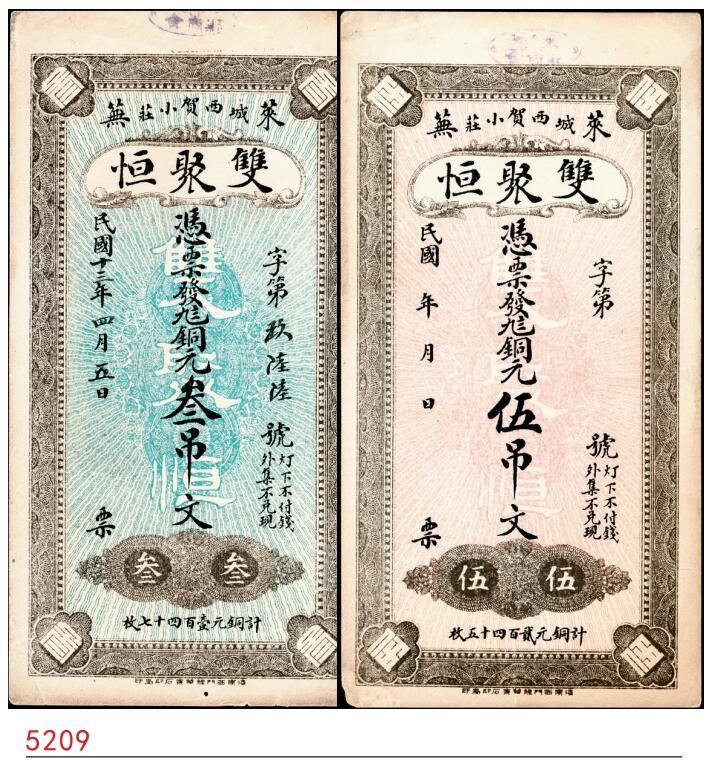 萊城西賀小莊蕪
雙聚恒
字第玖陸陸號
灯下不付錢
外集不兑現
憑票發銅元叁吊文
民國十三年四月五日
票
叁 叁
計銅元壹百四十七枚
萊城西賀小莊蕪
雙聚恒
字第 號
灯下不付錢
外集不兑現
憑票發銅元伍吊文
民國 年 月 日
票
伍 伍
計銅元貳百四十五枚
5209